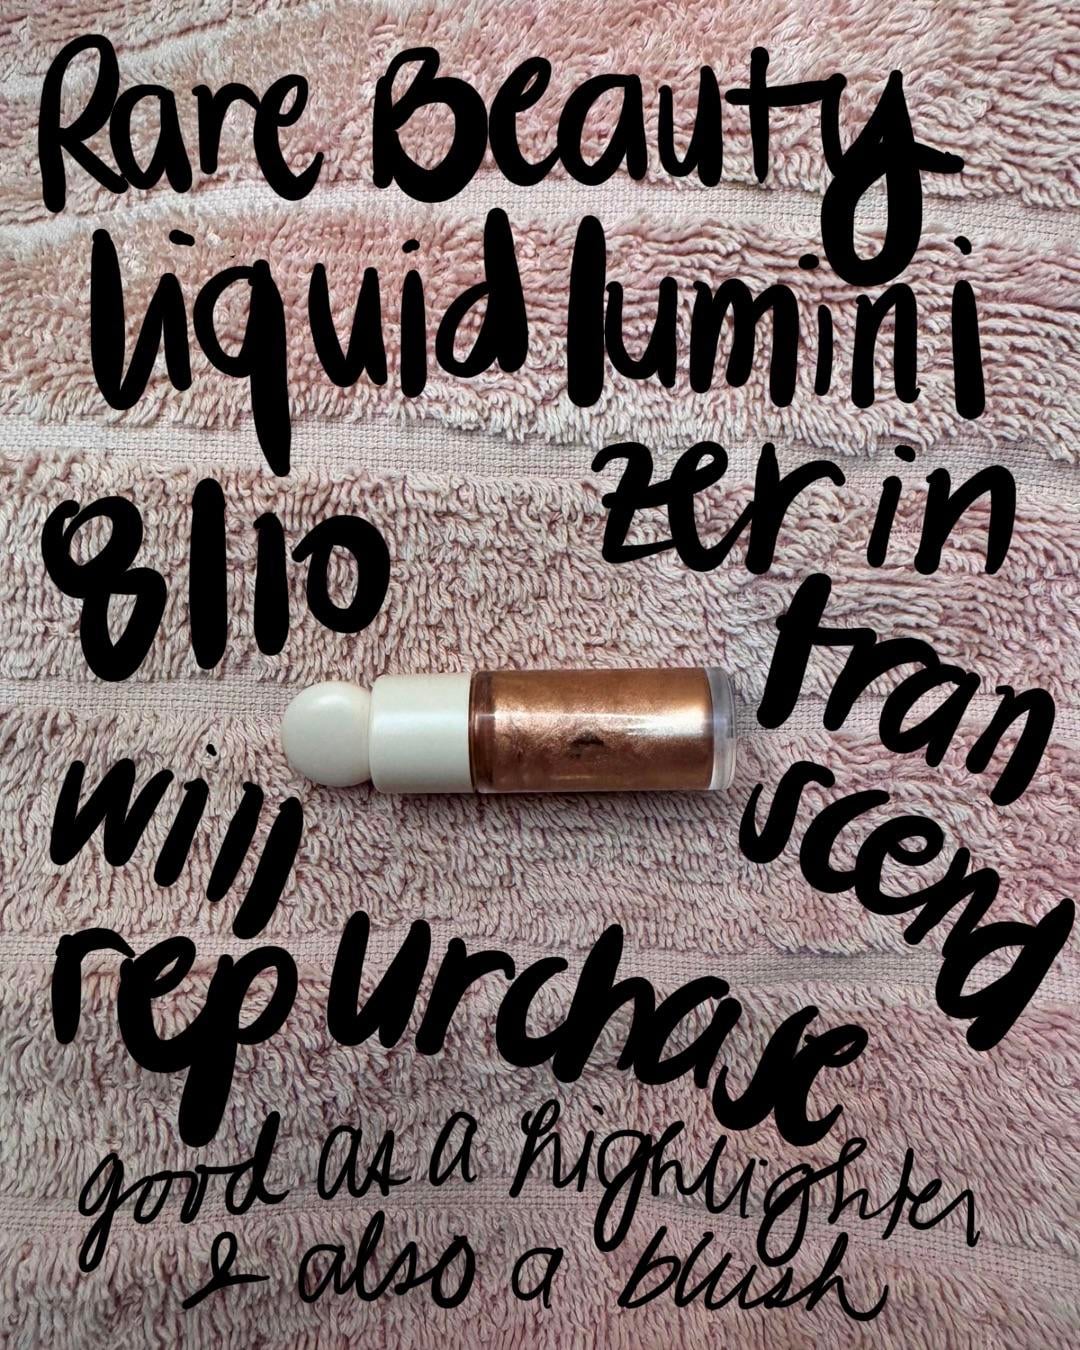 Rare Beauty
liquid lumini
zer in
tran
scend
8/10
will
repurchase
good as a highlighter
& also a blush